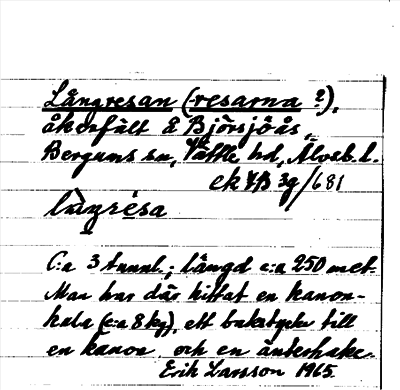 Långresan (-resarna ?),
åkerfält å Björsjöås,
Bergums sn, Vättle hd, Älvsb. l.
ek 7B 3g/681
lùŋrésa
C:a 3 tunnl.; längd c:a 250 met.
Man har där hittat en kanon-
kula (c:a 8 kg), ett bakstycke till
en kanon och en änterhake.
Erik Larsson 1965.